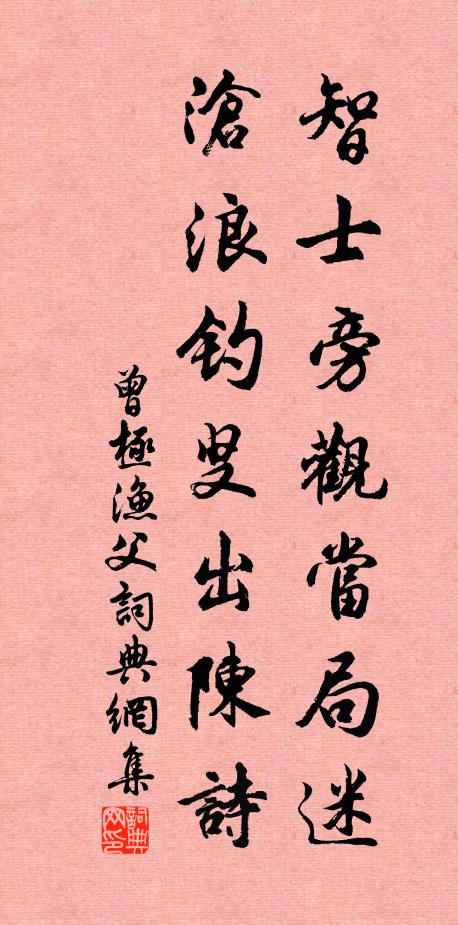 智士旁觀當局迷
滄浪釣叟出陳詩
曾極漁父詞典網集
詞典网印